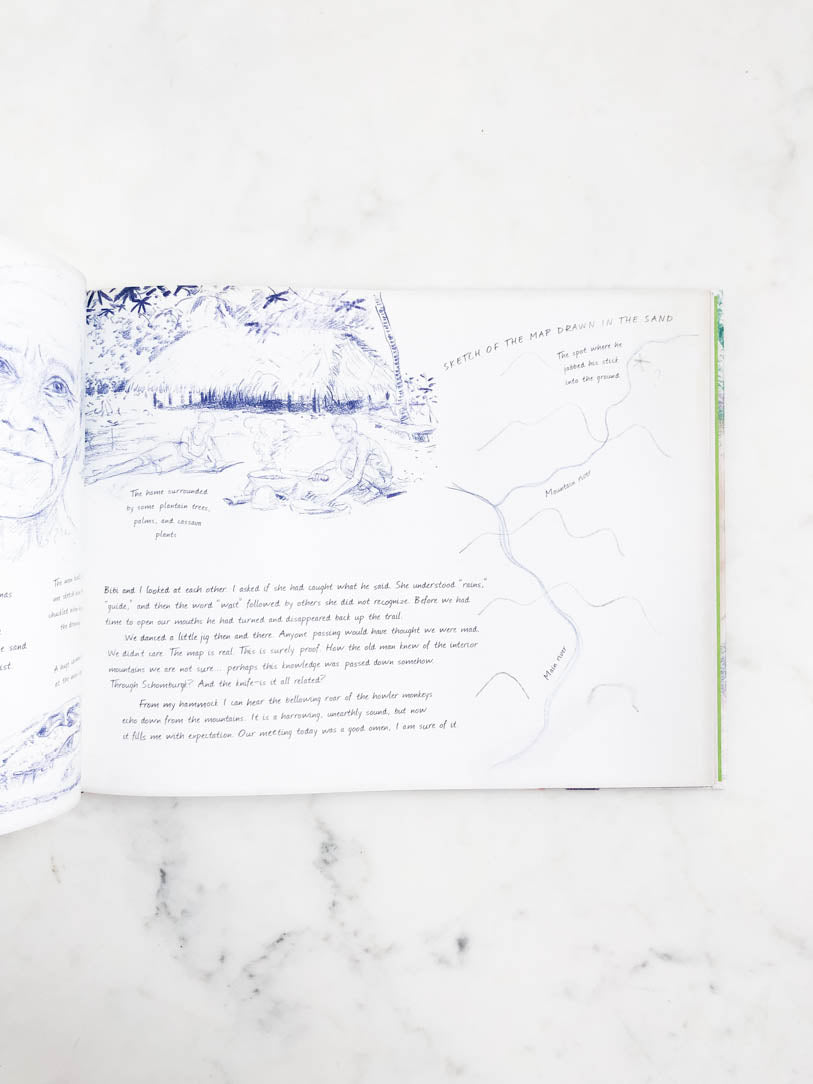 nds
e sand
ist
The home surrounded
by some plantain trees,
palms, and cassava
plants
Bibi and I looked at each other. I asked if she had caught what he said. She understood "rains,"
"guide," and then the word "wast" followed by others she did not recognize. Before we had
time to open our mouths he had turned and disappeared back up the trail.
We danced a little jig then and there. Anyone passing would have thought we were mad.
We didn't care. The map is real. This is surely proof. How the old man knew of the interior
mountains we are not sure... perhaps this knowledge was passed down somehow.
Through Schomburgk? And the knife—is it all related?
From my hammock I can hear the bellowing roar of the howler monkeys
echo down from the mountains. It is a harrowing, unearthly sound, but now
it fills me with expectation. Our meeting today was a good omen, I am sure of it.
SKETCH OF THE MAP DRAWN IN THE SAND
The spot where he
jabbed his stick
into the ground
Mountain river
Main river